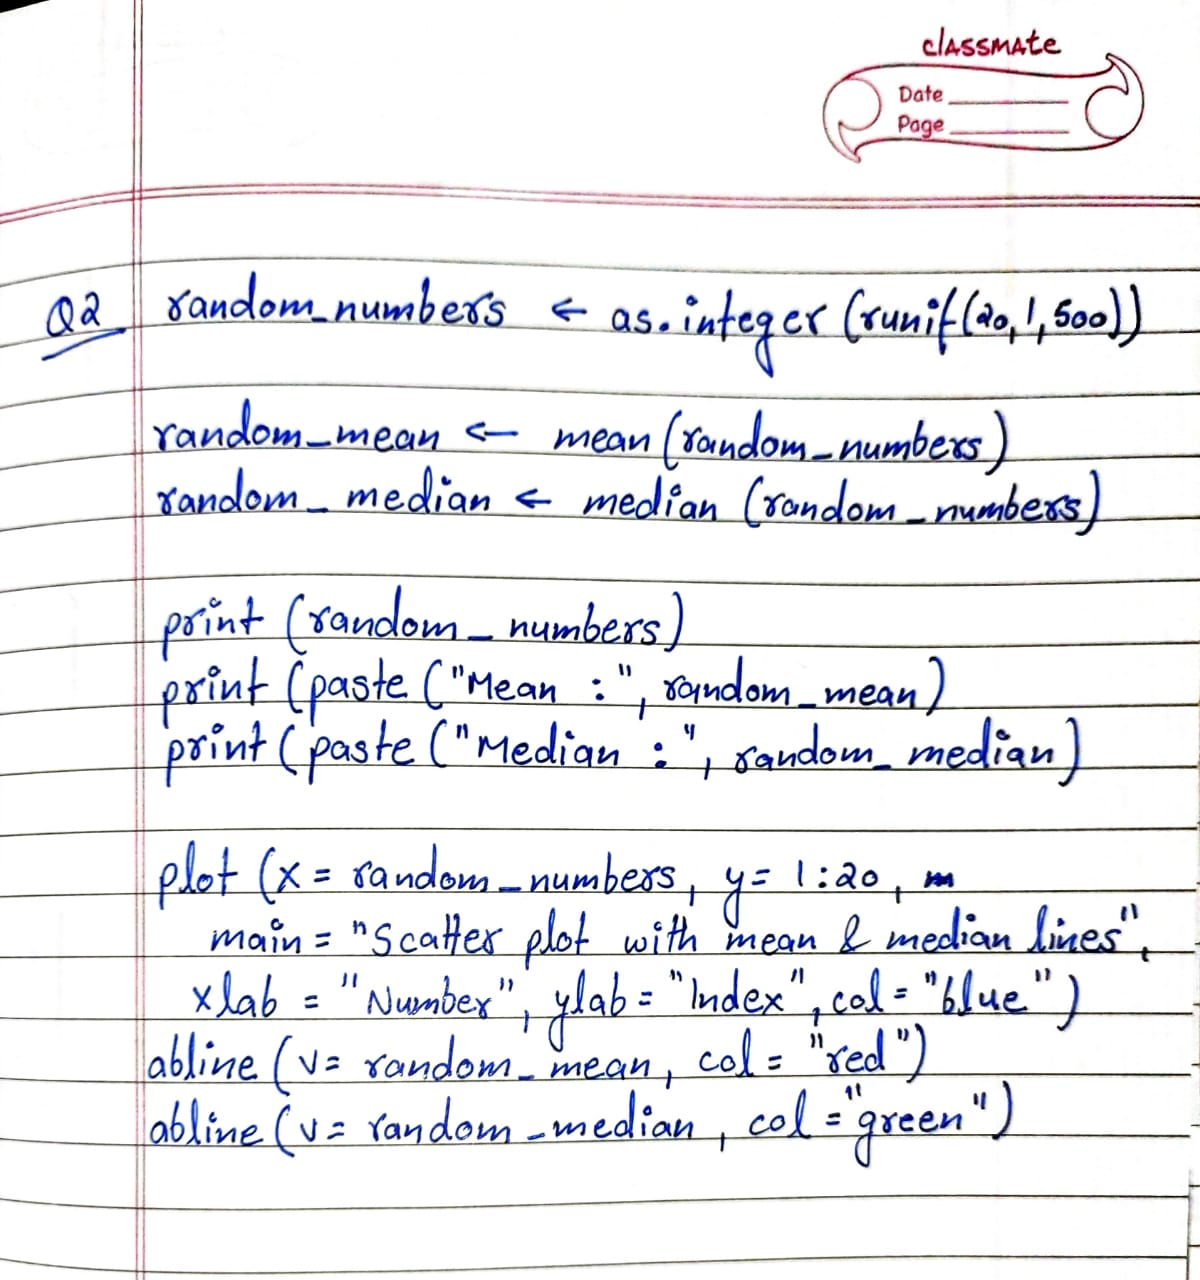 classmate
Date
Page
Q2 random_numbers ← as.integer (runif(20,1,500))
random_mean ← mean (random_numbers)
random_median ← median (random_numbers)
print (random_numbers)
print (paste ("Mean :", random_mean)
print (paste ("Median :", random_median)
plot (x = random_numbers, y = 1:20,
main = "Scatter plot with mean & median lines",
xlab = "Number", ylab = "Index", col = "blue")
abline (v= random_mean, col = "red")
abline (v= random_median, col = "green")